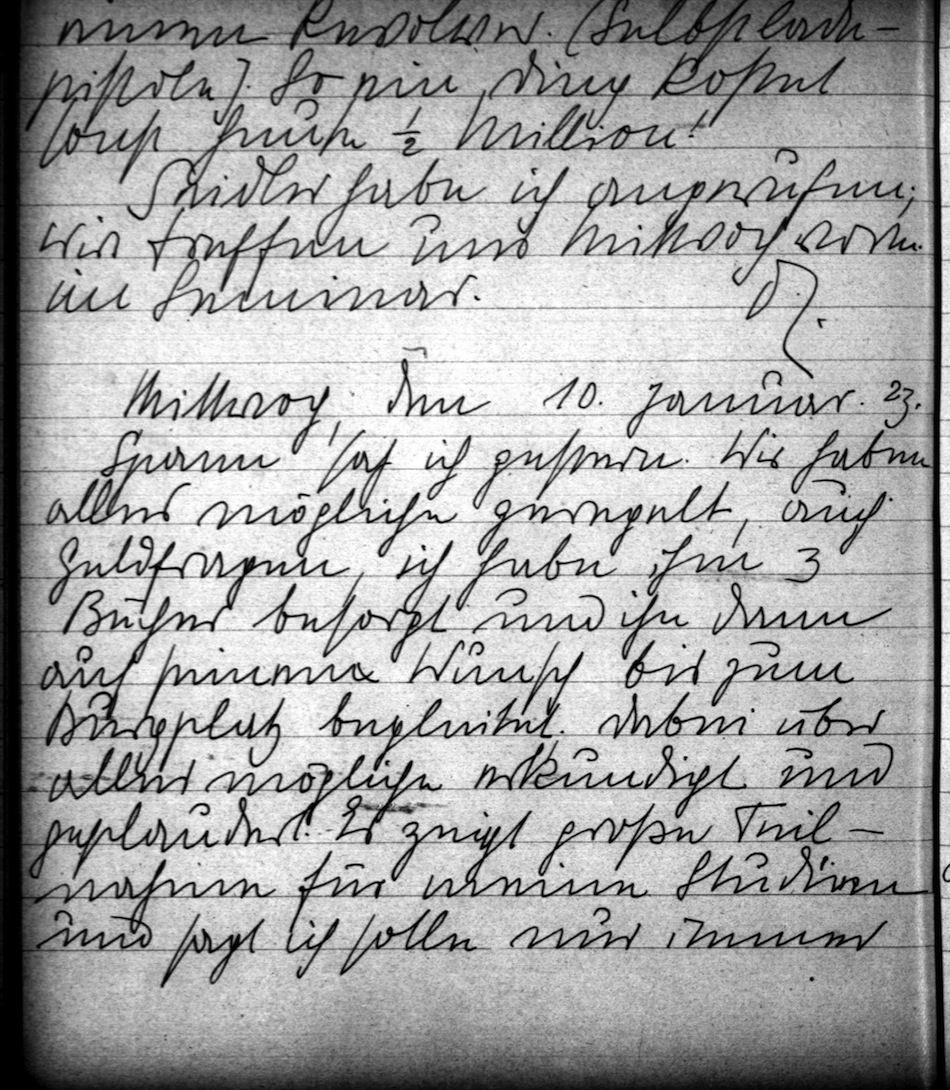 einen Revolver. (Selbstlade-
pistole). So ein Ding kostet
sonst heute ½ Million!
Seidler habe ich angerufen;
wir treffen uns Mittwoch vorm.
im Seminar.
Mittwoch, den 10. Januar. 23.
Spann sah ich gestern. Wir haben
alles mögliche geregelt, auch
Geldfragen, ich habe ihm 3
Bücher besorgt und ihn dann
auf seinen Wunsch bis zum
Burgplatz begleitet. Dabei über
alles mögliche erkundigt und
geplaudert. Er zeigt große Teil-
nahme für meine Studien
und sagt ich solle nur immer